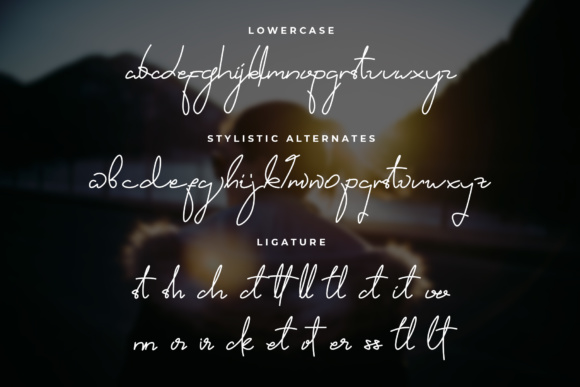 LOWERCASE
abcdefghijklmnopqrstuvwxyz
STYLISTIC ALTERNATES
abcdefghijklmnopqrstuvwxyz
LIGATURE
st sh ch ct tt ll tl ct it
or ir ck et ot er ss tl lt